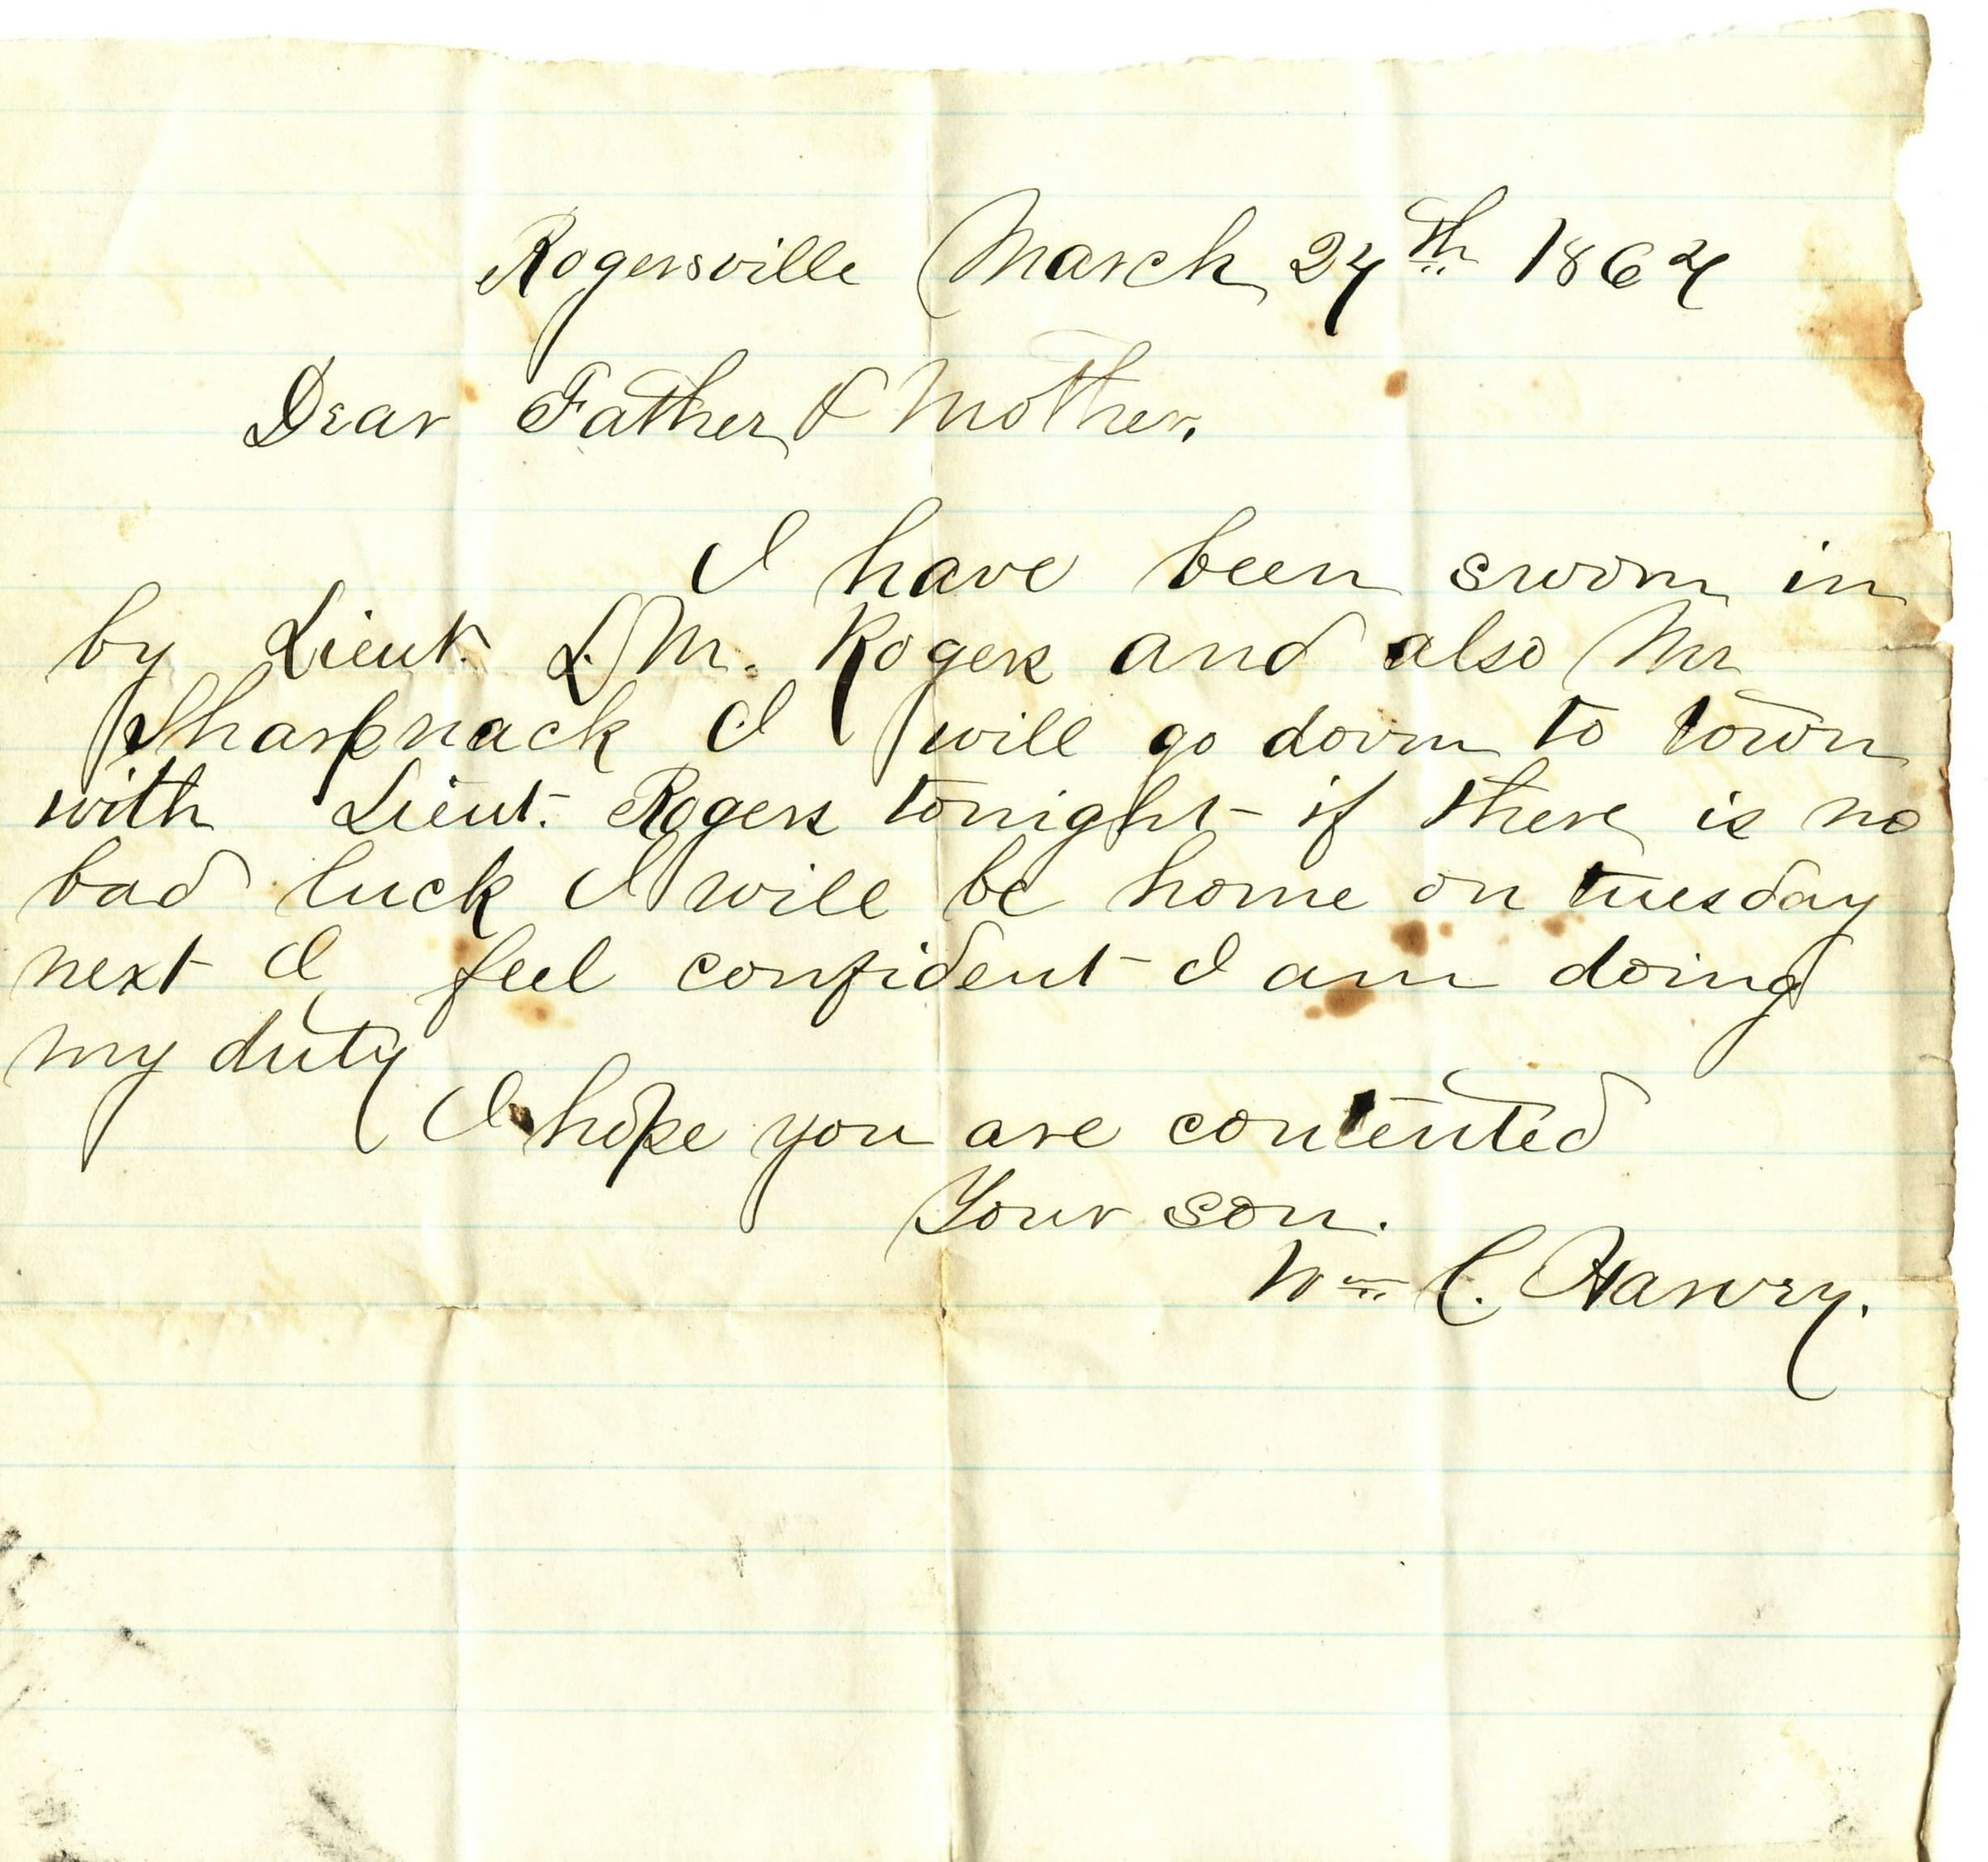 Rogersville March 24th 1864
Dear Father & Mother,
I have been sworn in
by Lieut. L. M. Rogers and also Mr
Sharpnack I will go down to town
with Lieut. Rogers tonight if there is no
bad luck I will be home on tuesday
next I feel confident I am doing
my duty
I hope you are contented
Your son.
Wm C. Hawry.